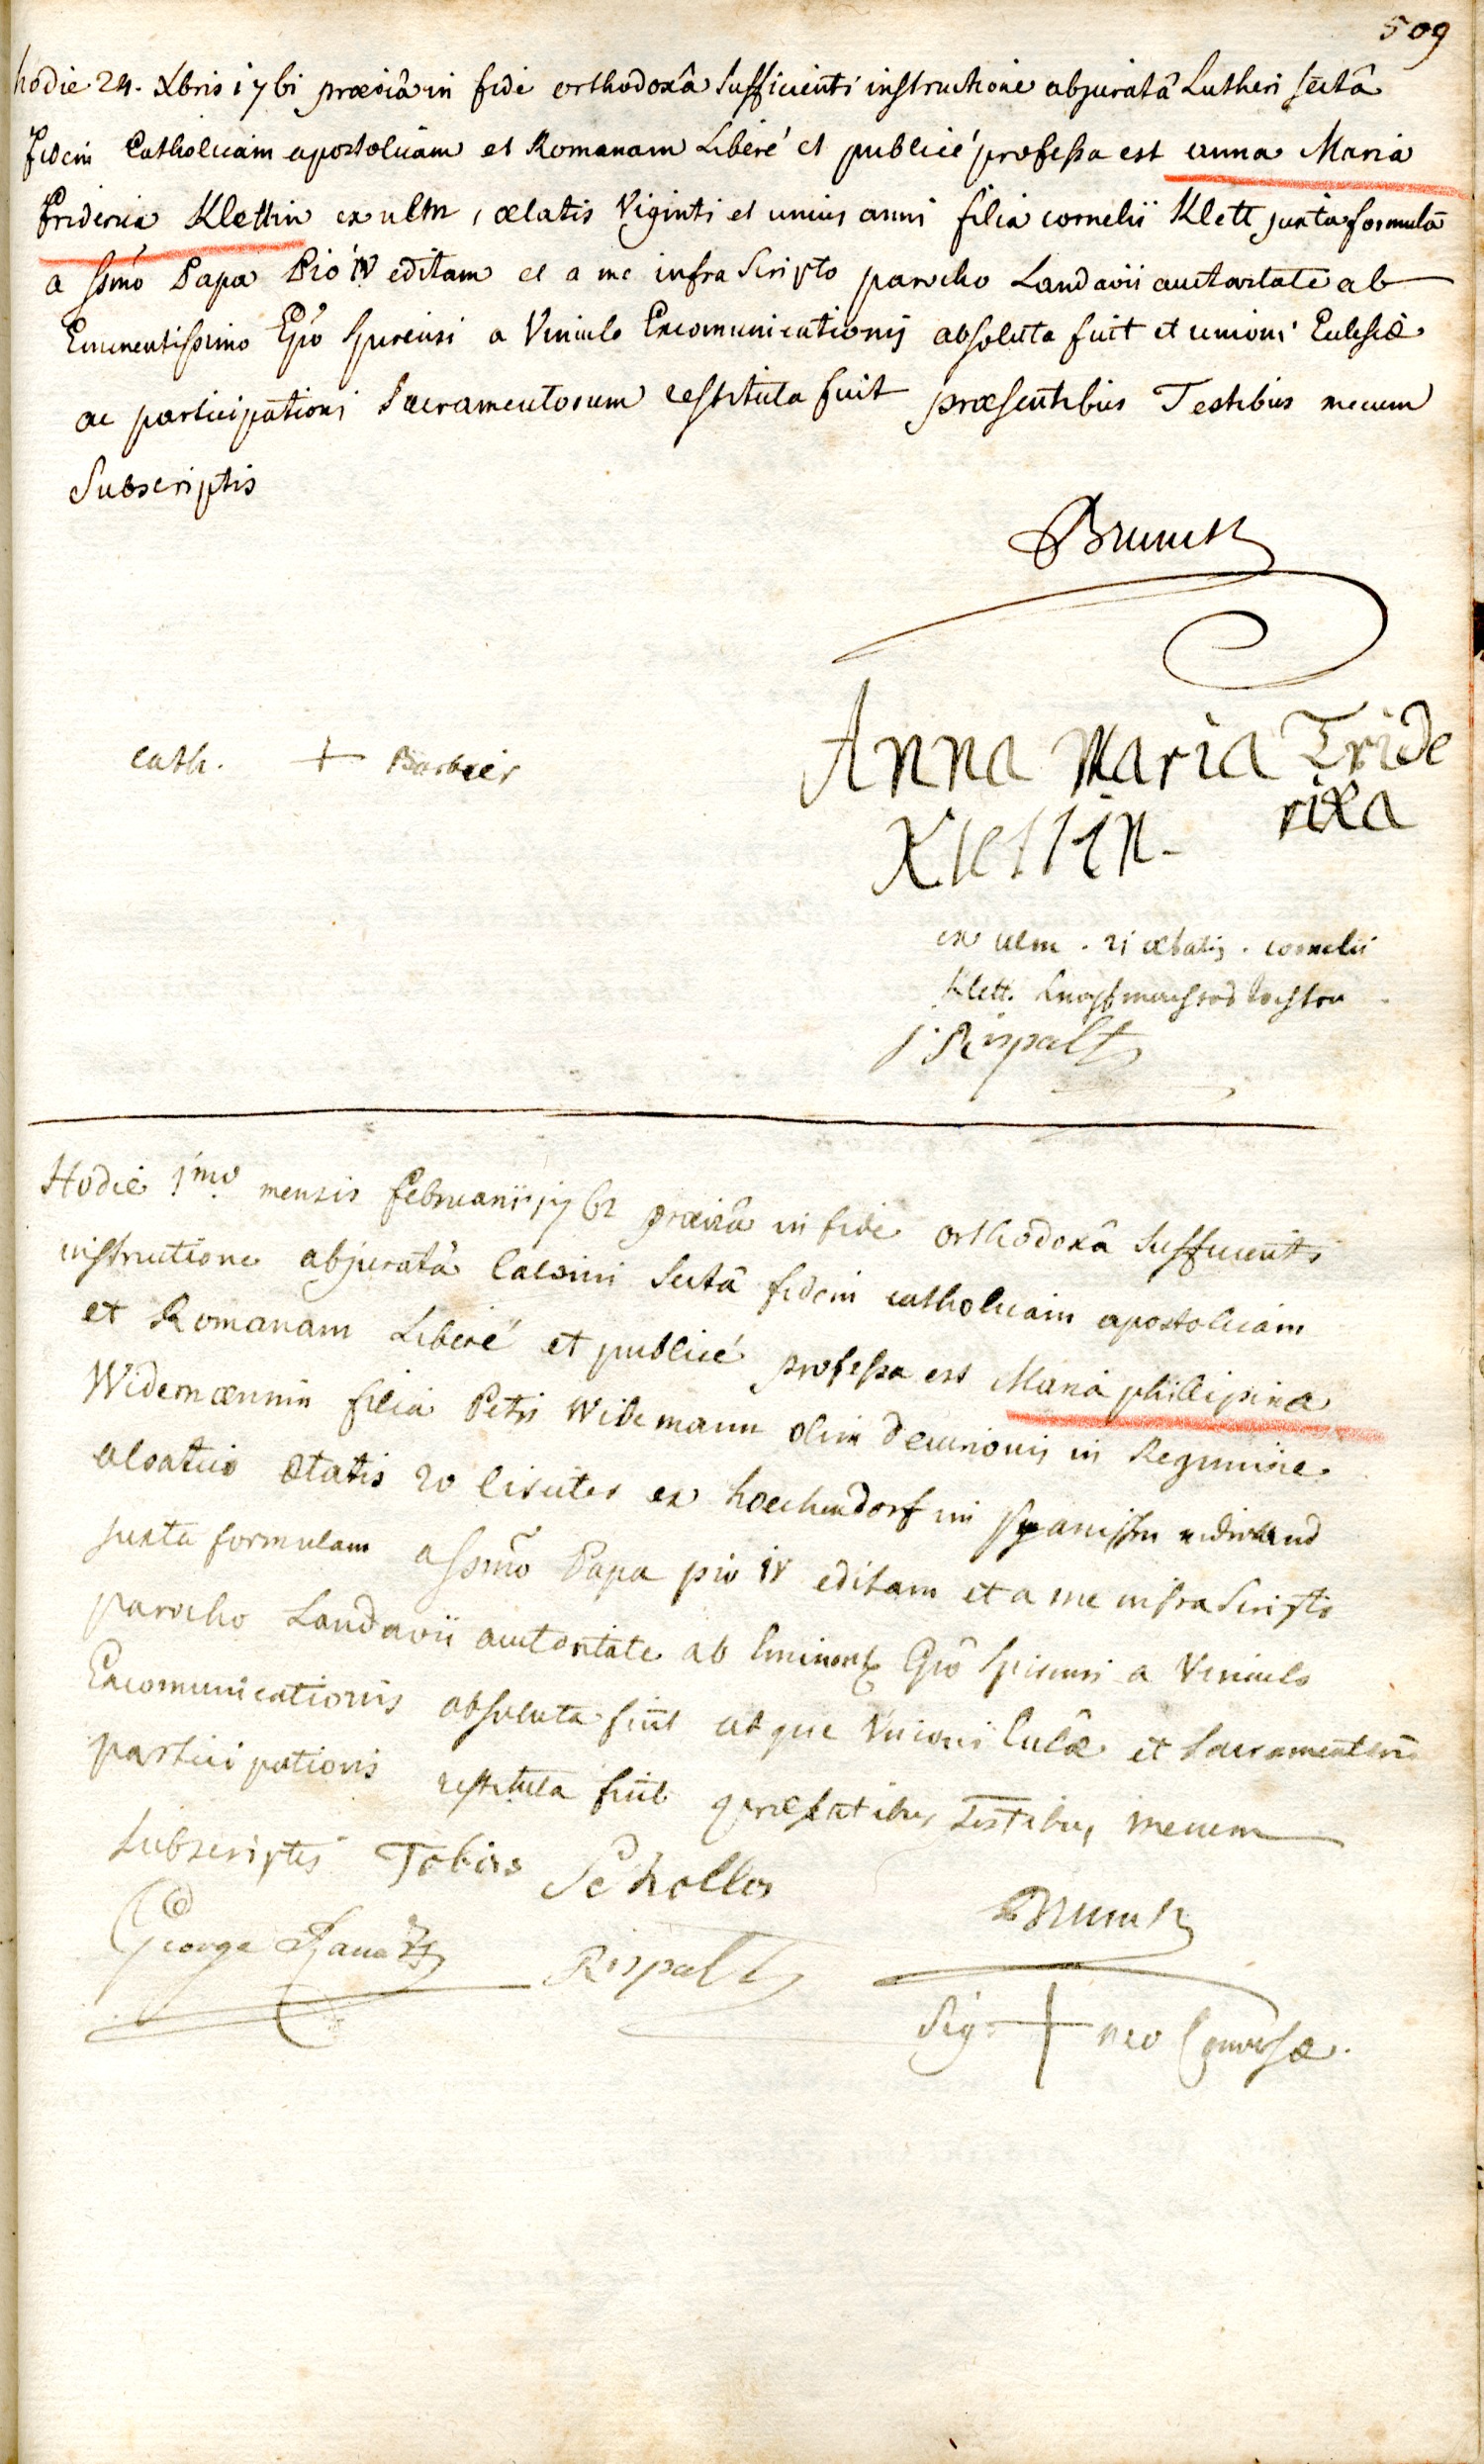 509
hodie 24. Xbris 1761 præviâ in fide orthodoxâ sufficienti instructione abjuratâ Lutheri sectâ
fidem Catholicam apostolicam et Romanam Liberé et publicé professa est anna Maria
friderica Klettin ex ulm, ætatis Viginti et unius anni filia cornelii Klett juxta formulā
a ssmo Papa Pio iv editam et a me infra Scripto parocho Landavii auctoritate ab
Eminentissimo Epô Spirensi a Vinculo Excomunicationis absoluta fuit et unioni Ecclesiæ
ac participationi Sacramentorum restituta fuit præsentibus Testibus mecum
Subscriptis
Brunck
cath. + Barbier
Anna Maria Fride
rika
Klettin
ex ulm. 21 ætatis. cornelii
Klett. Knopfmachers tochter
J Rispalt
Hodie 1mo mensis februarii 1762 præviâ in fide orthodoxâ Sufficienti
instructione abjuratâ Calvini Sectâ fidem catholicam apostolicam
et Romanam Liberé et publicé professa est Maria phillipina
Widemænnin filia Petri Widemann olim decurionis in Regimine
alsatico ætatis 20 Circiter ex hochendorf im
juxta formulam a ssmo Papa pio iv editam et a me infra Scripto
parocho Landavii auctoritate ab Eminent Epô Spirensi a Vinculo
Excomunicationis absoluta fuit atque Unioni Eccl̂æ et Sacramentorū
participationis restituta fuit præsentibus Testibus mecum
Subscriptis Tobias Scholler
Brunck
George Rispalt
Sig. + neo Conversæ.